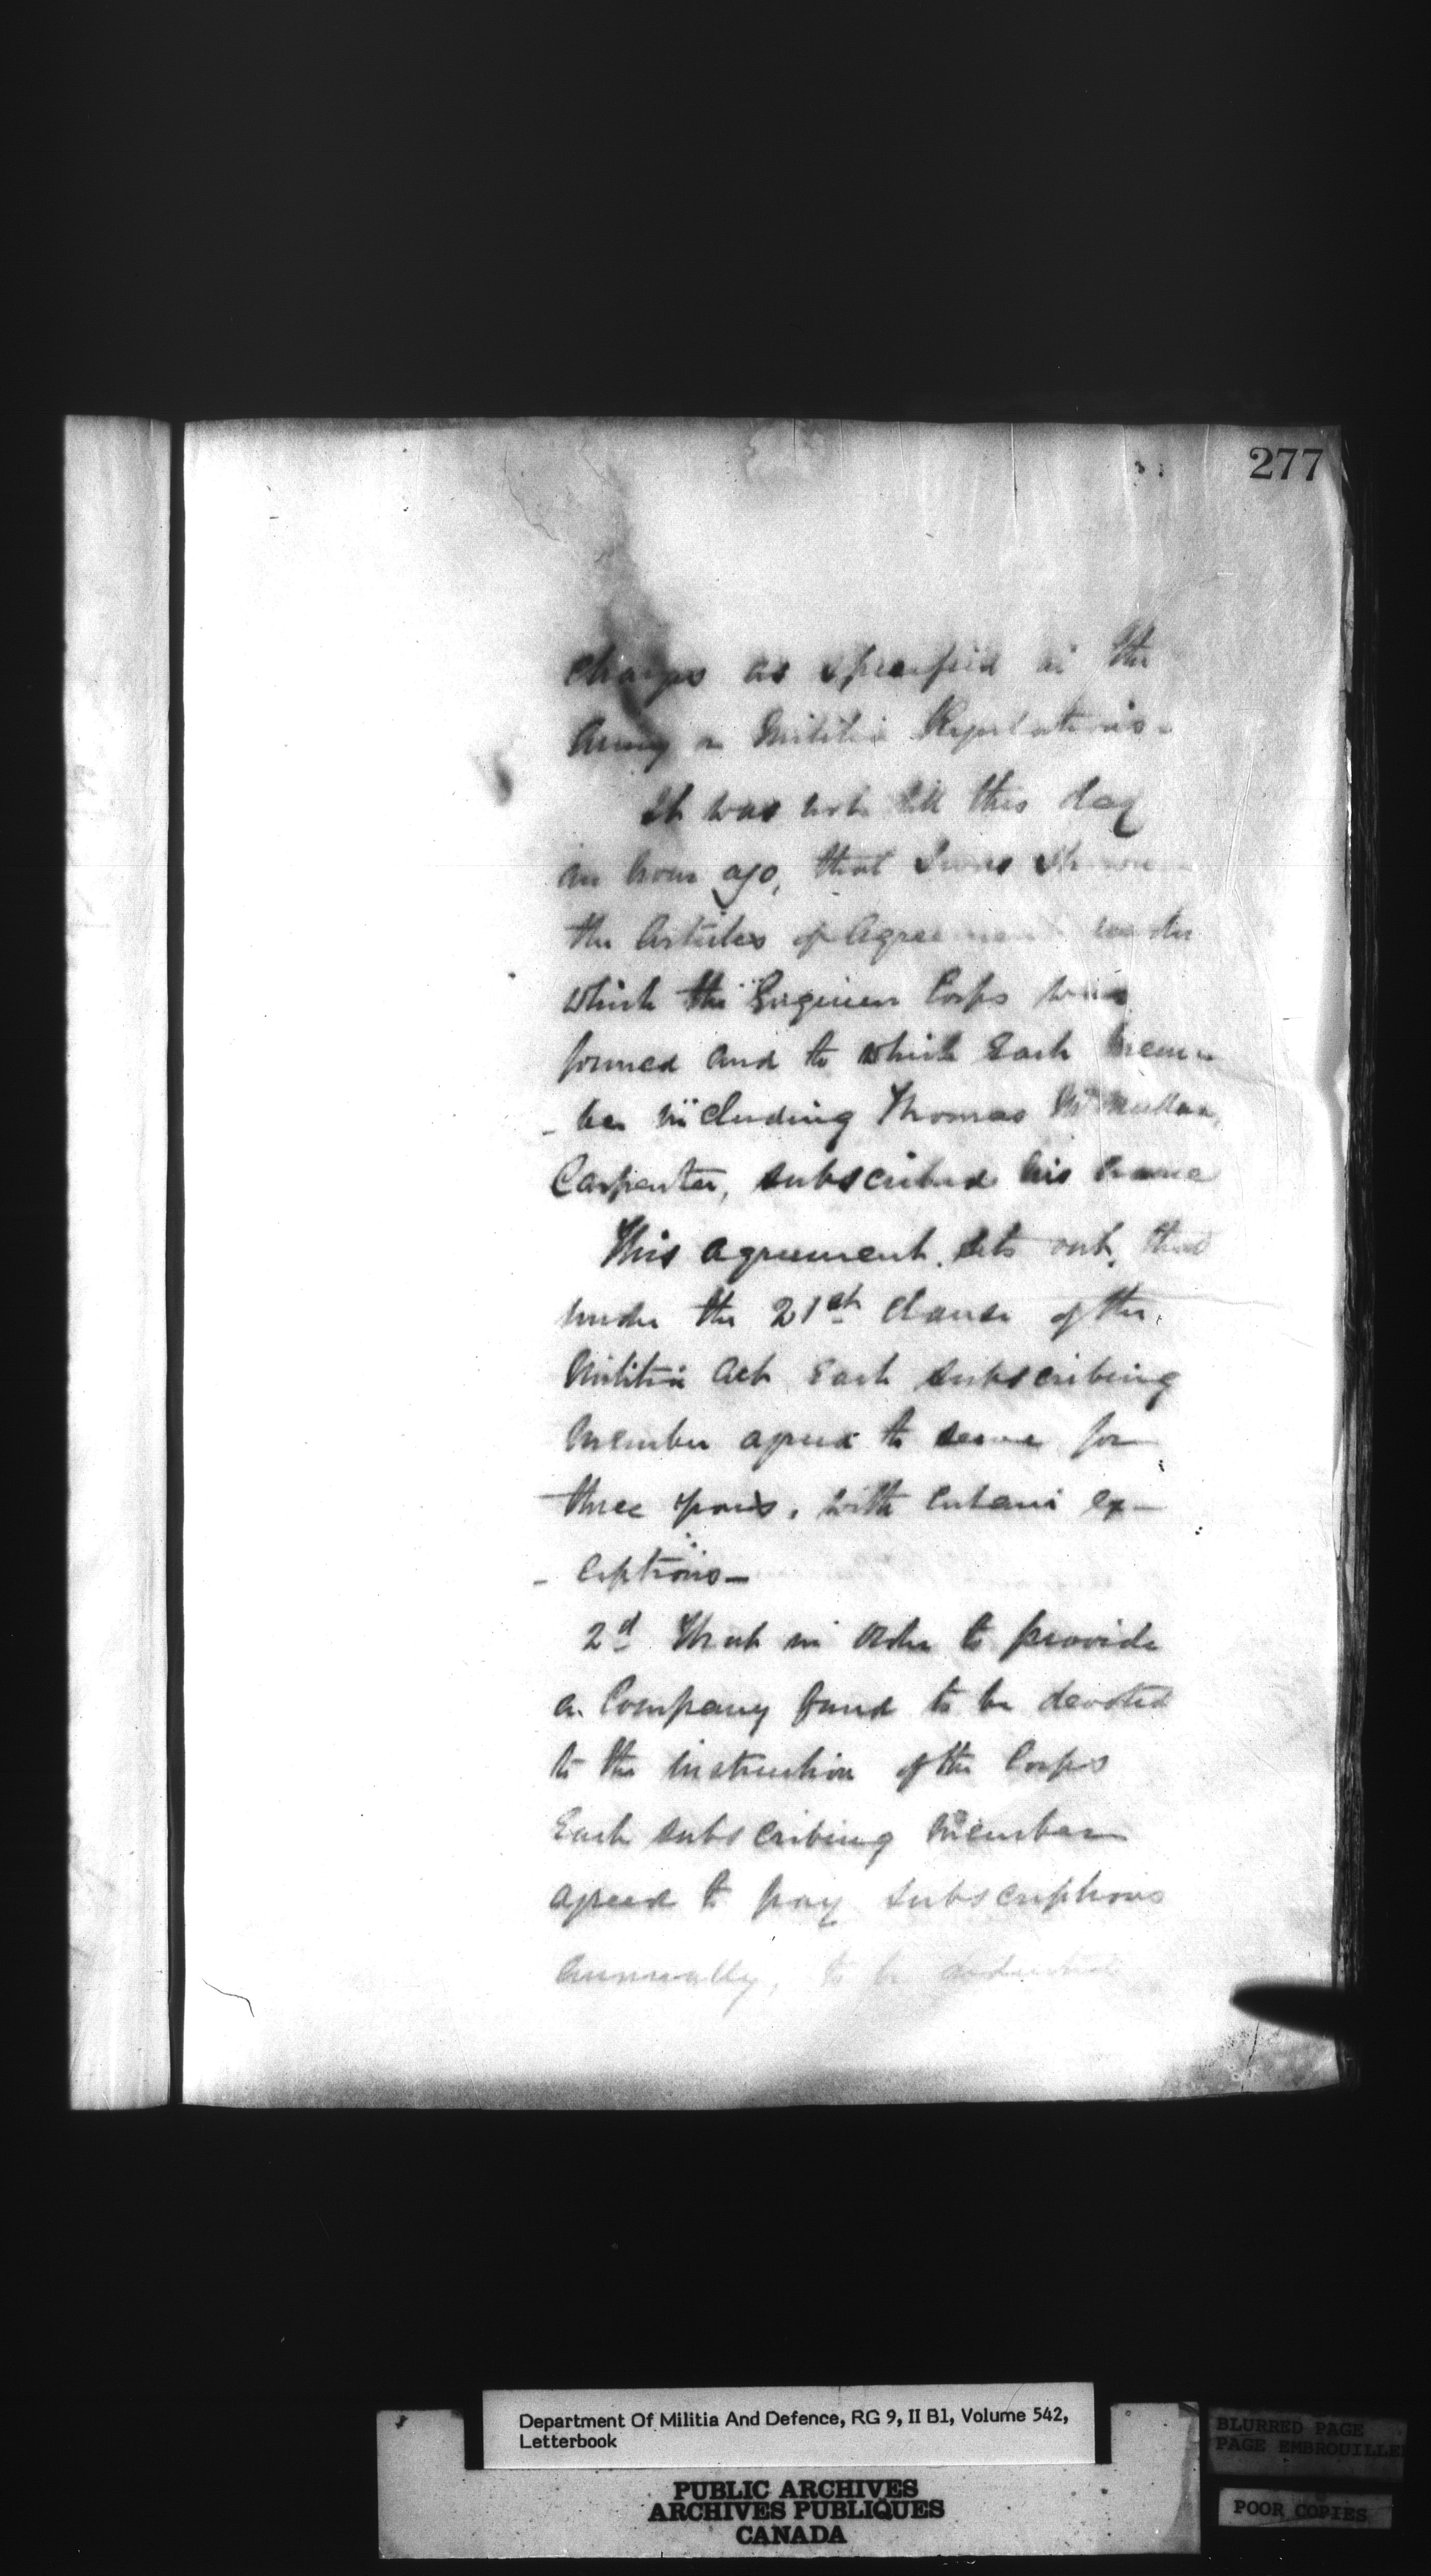 277
charges as specified in the
Army or Militia Regulations.
It was not till this day
an hour ago, that I was shown
the Articles of Agreement under
which the Engineer Corps was
formed and to which Each mem
- ber including Thomas McMullan,
Carpenter, subscribed his name
This agreement sets out, that
under the 21st Clause of the
Militia Act Each subscribing
Member agreed to serve for
three years, with certain ex-
- ceptions-
2d That in Order to provide
a Company fund to be devoted
to the instruction of the Corps
Each subscribing Member
agreed to pay subscriptions
annually, to be deducted
Department Of Militia And Defence, RG 9, II B1, Volume 542,
Letterbook
PUBLIC ARCHIVES
ARCHIVES PUBLIQUES
CANADA
BLURRED PAGE
PAGE EMBROUILLE
POOR COPIES